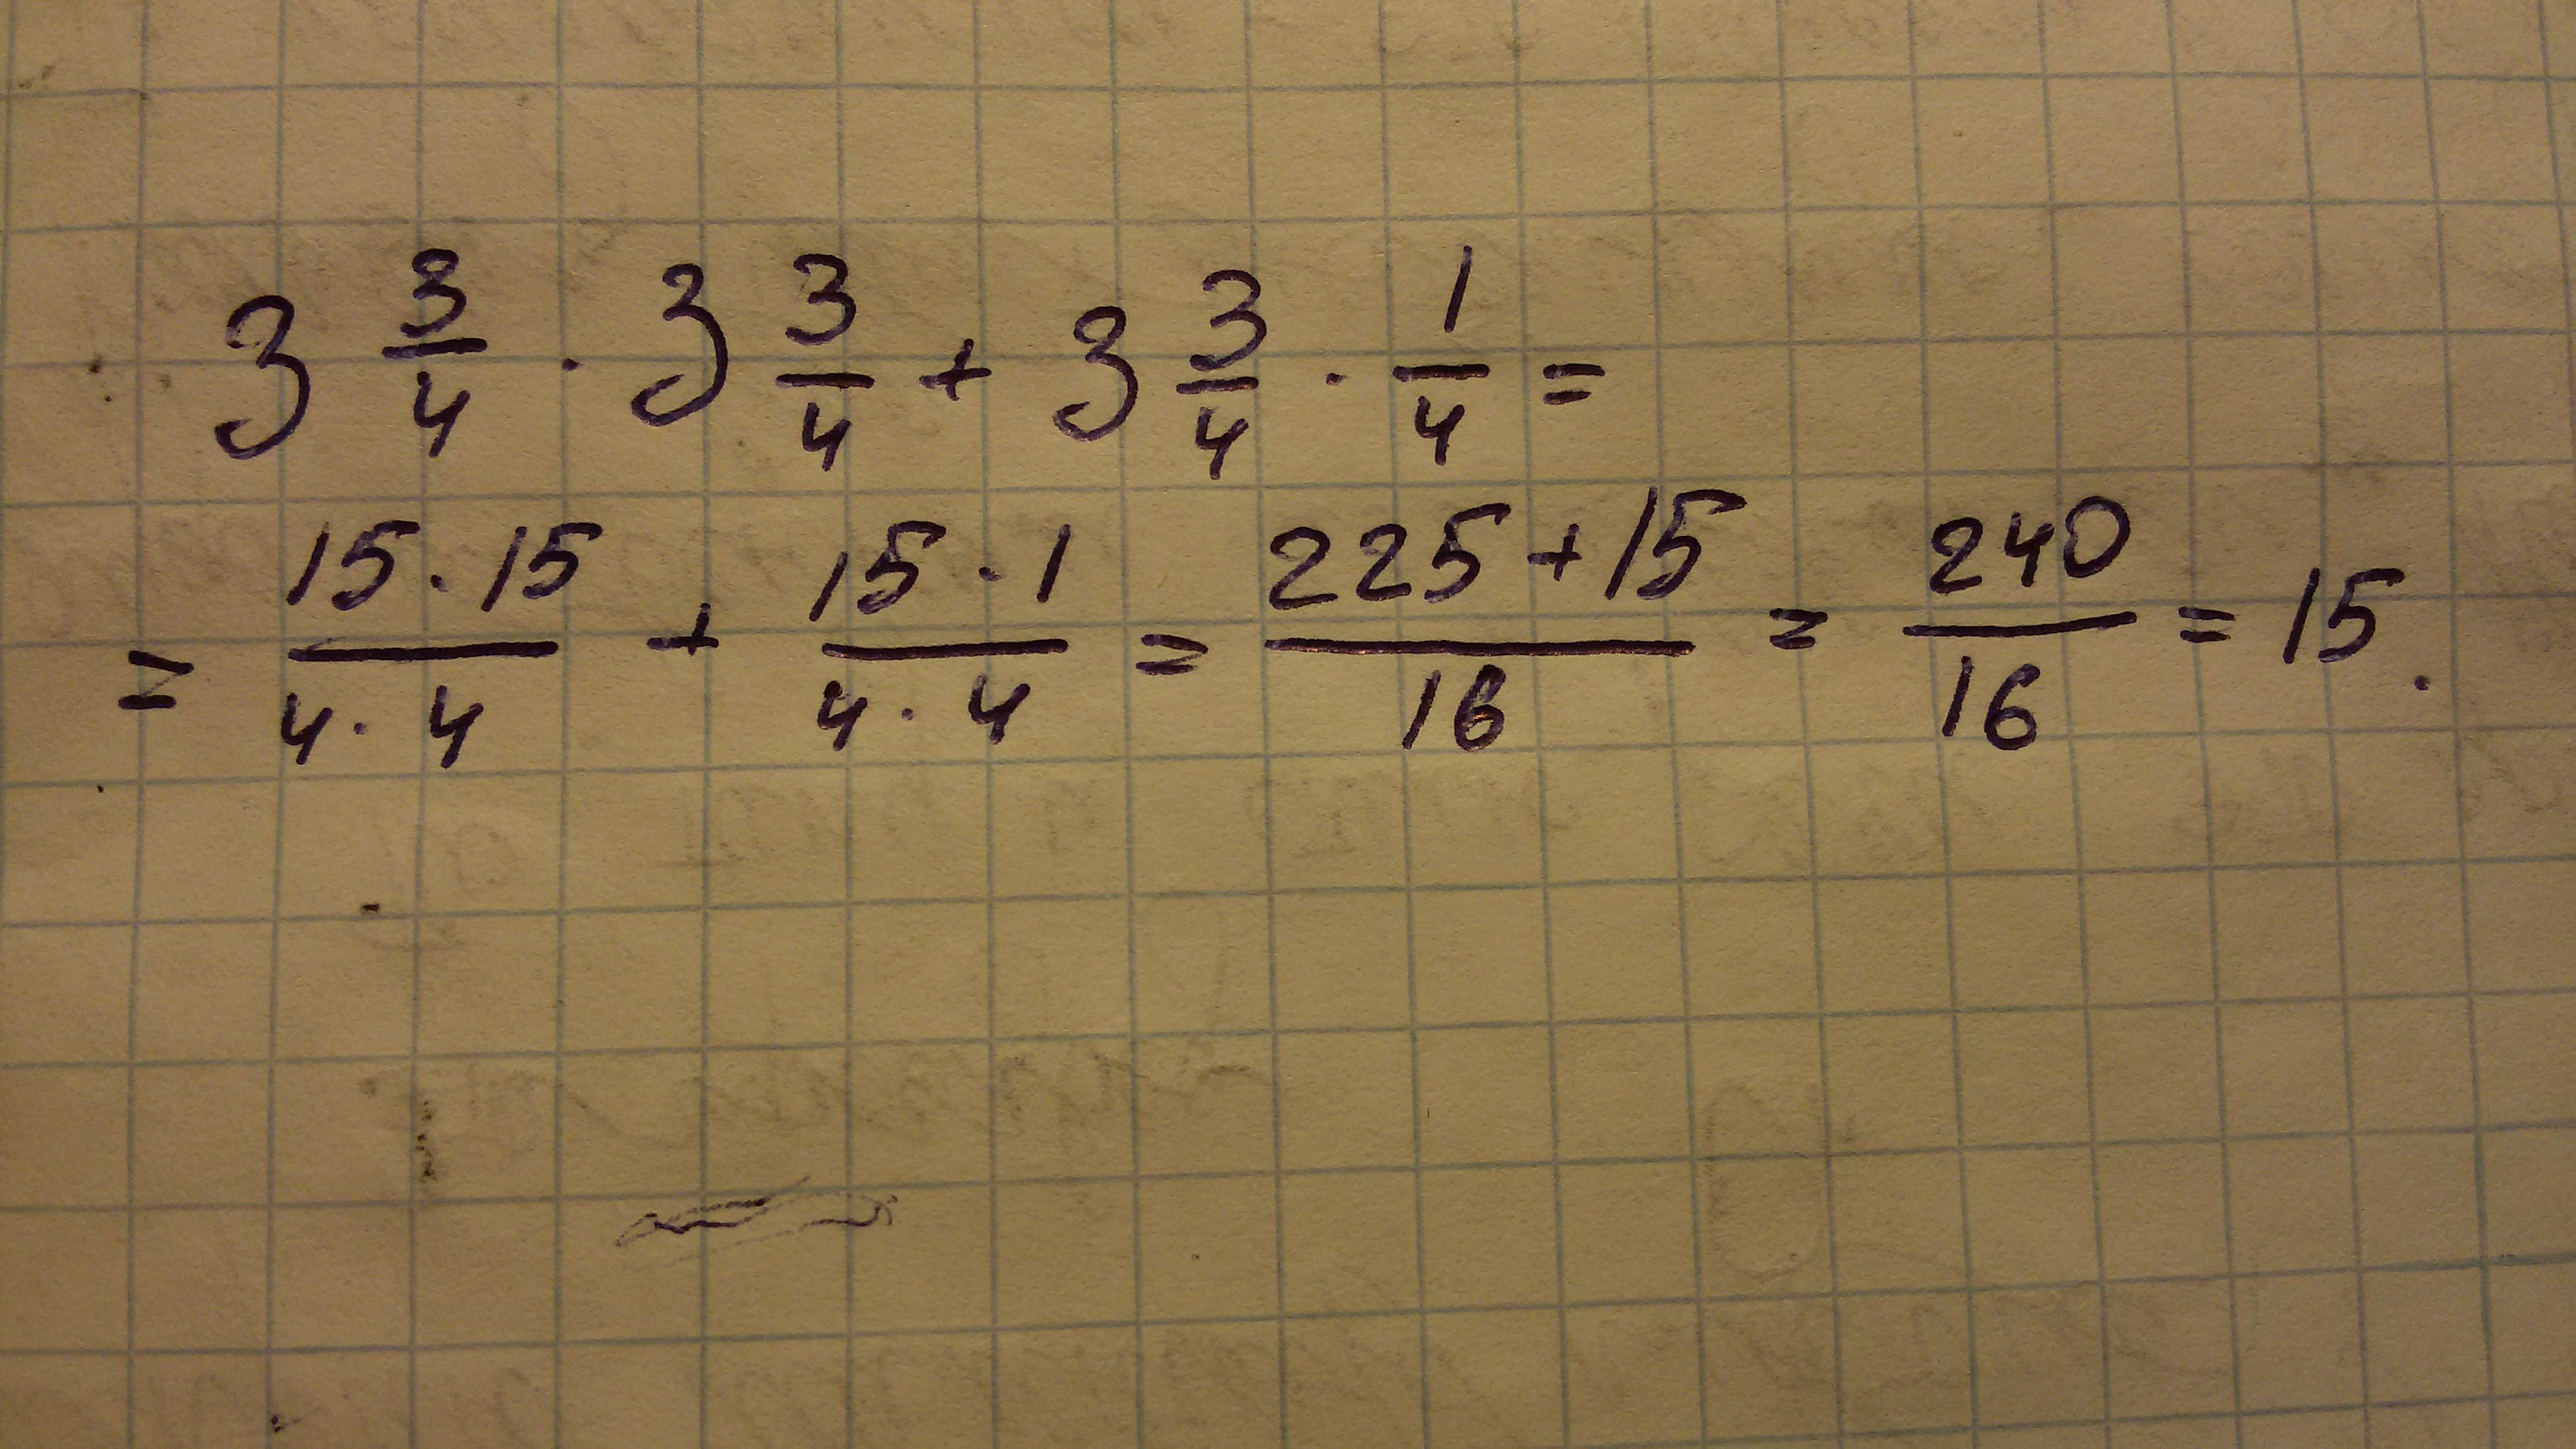 3 3/4 · 3 3/4 + 3 3/4 · 1/4 =
= (15 · 15)/(4 · 4) + (15 · 1)/(4 · 4) = (225 + 15)/16 = 240/16 = 15.